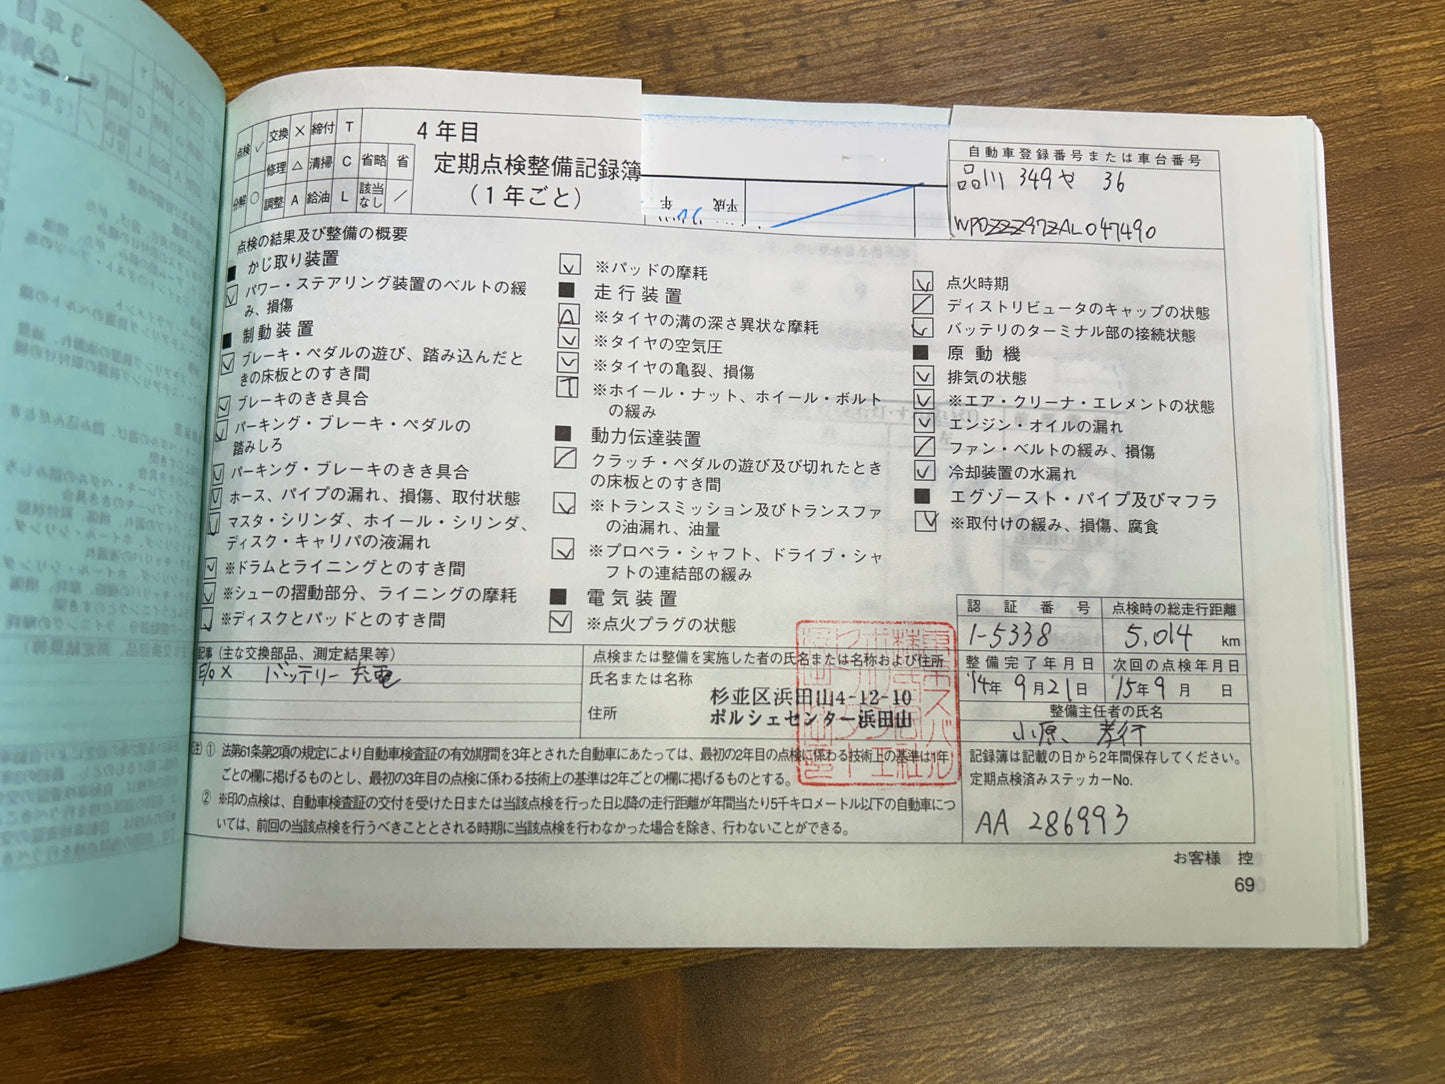 点検 ✓ 交換 × 締付 T
修理 △ 清掃 C 省略 省
分解 ○ 調整 A 給油 L 該当なし ／
4年目
定期点検整備記録簿
（1年ごと）
平成
年
自動車登録番号または車台番号
品川 349 や 36
WP0ZZZ97ZAL047490
点検の結果及び整備の概要
■ かじ取り装置
パワー・ステアリング装置のベルトの緩
み、損傷
■ 制動装置
ブレーキ・ペダルの遊び、踏み込んだと
きの床板とのすき間
ブレーキのきき具合
パーキング・ブレーキ・ペダルの
踏みしろ
パーキング・ブレーキのきき具合
ホース、パイプの漏れ、損傷、取付状態
マスタ・シリンダ、ホイール・シリンダ、
ディスク・キャリパの液漏れ
※ドラムとライニングとのすき間
※シューの摺動部分、ライニングの摩耗
※ディスクとパッドとのすき間
※パッドの摩耗
■ 走行装置
A ※タイヤの溝の深さ異状な摩耗
※タイヤの空気圧
※タイヤの亀裂、損傷
T ※ホイール・ナット、ホイール・ボルト
の緩み
■ 動力伝達装置
クラッチ・ペダルの遊び及び切れたとき
の床板とのすき間
※トランスミッション及びトランスファ
の油漏れ、油量
※プロペラ・シャフト、ドライブ・シャ
フトの連結部の緩み
■ 電気装置
※点火プラグの状態
点火時期
ディストリビュータのキャップの状態
バッテリのターミナル部の接続状態
■ 原動機
排気の状態
※エア・クリーナ・エレメントの状態
エンジン・オイルの漏れ
ファン・ベルトの緩み、損傷
冷却装置の水漏れ
■ エグゾースト・パイプ及びマフラ
※取付けの緩み、損傷、腐食
記事（主な交換部品、測定結果等）
E/o × バッテリー充電
点検または整備を実施した者の氏名または名称および住所
氏名または名称
杉並区浜田山4-12-10
住所
ポルシェセンター浜田山
認証番号 点検時の総走行距離
1-5338 5,014 km
整備完了年月日 次回の点検年月日
'14年 9月21日 '15年 9月 日
整備主任者の氏名
小原 孝行
記録簿は記載の日から2年間保存してください。
定期点検済みステッカーNo.
AA 286993
（注）① 法第61条第2項の規定により自動車検査証の有効期間を3年とされた自動車にあたっては、最初の2年目の点検に係わる技術上の基準は1年
ごとの欄に掲げるものとし、最初の3年目の点検に係わる技術上の基準は2年ごとの欄に掲げるものとする。
② ※印の点検は、自動車検査証の交付を受けた日または当該点検を行った日以降の走行距離が年間当たり5千キロメートル以下の自動車につ
いては、前回の当該点検を行うべきこととされる時期に当該点検を行わなかった場合を除き、行わないことができる。
お客様 控
69